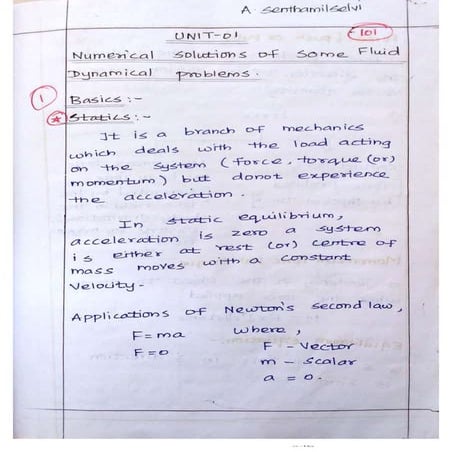 A. Senthamilselvi
UNIT-01
101
Numerical solutions of some Fluid
Dynamical problems.
1 Basics :-
* Statics :-
It is a branch of mechanics
which deals with the load acting
on the system (force, torque (or)
momentum) but donot experience
the acceleration.
In static equilibrium,
acceleration is zero a system
is either at rest (or) centre of
mass moves with a constant
velocity.
Applications of Newton's second law,
F=ma where,
F=0 F - Vector
m - Scalar
a = 0.